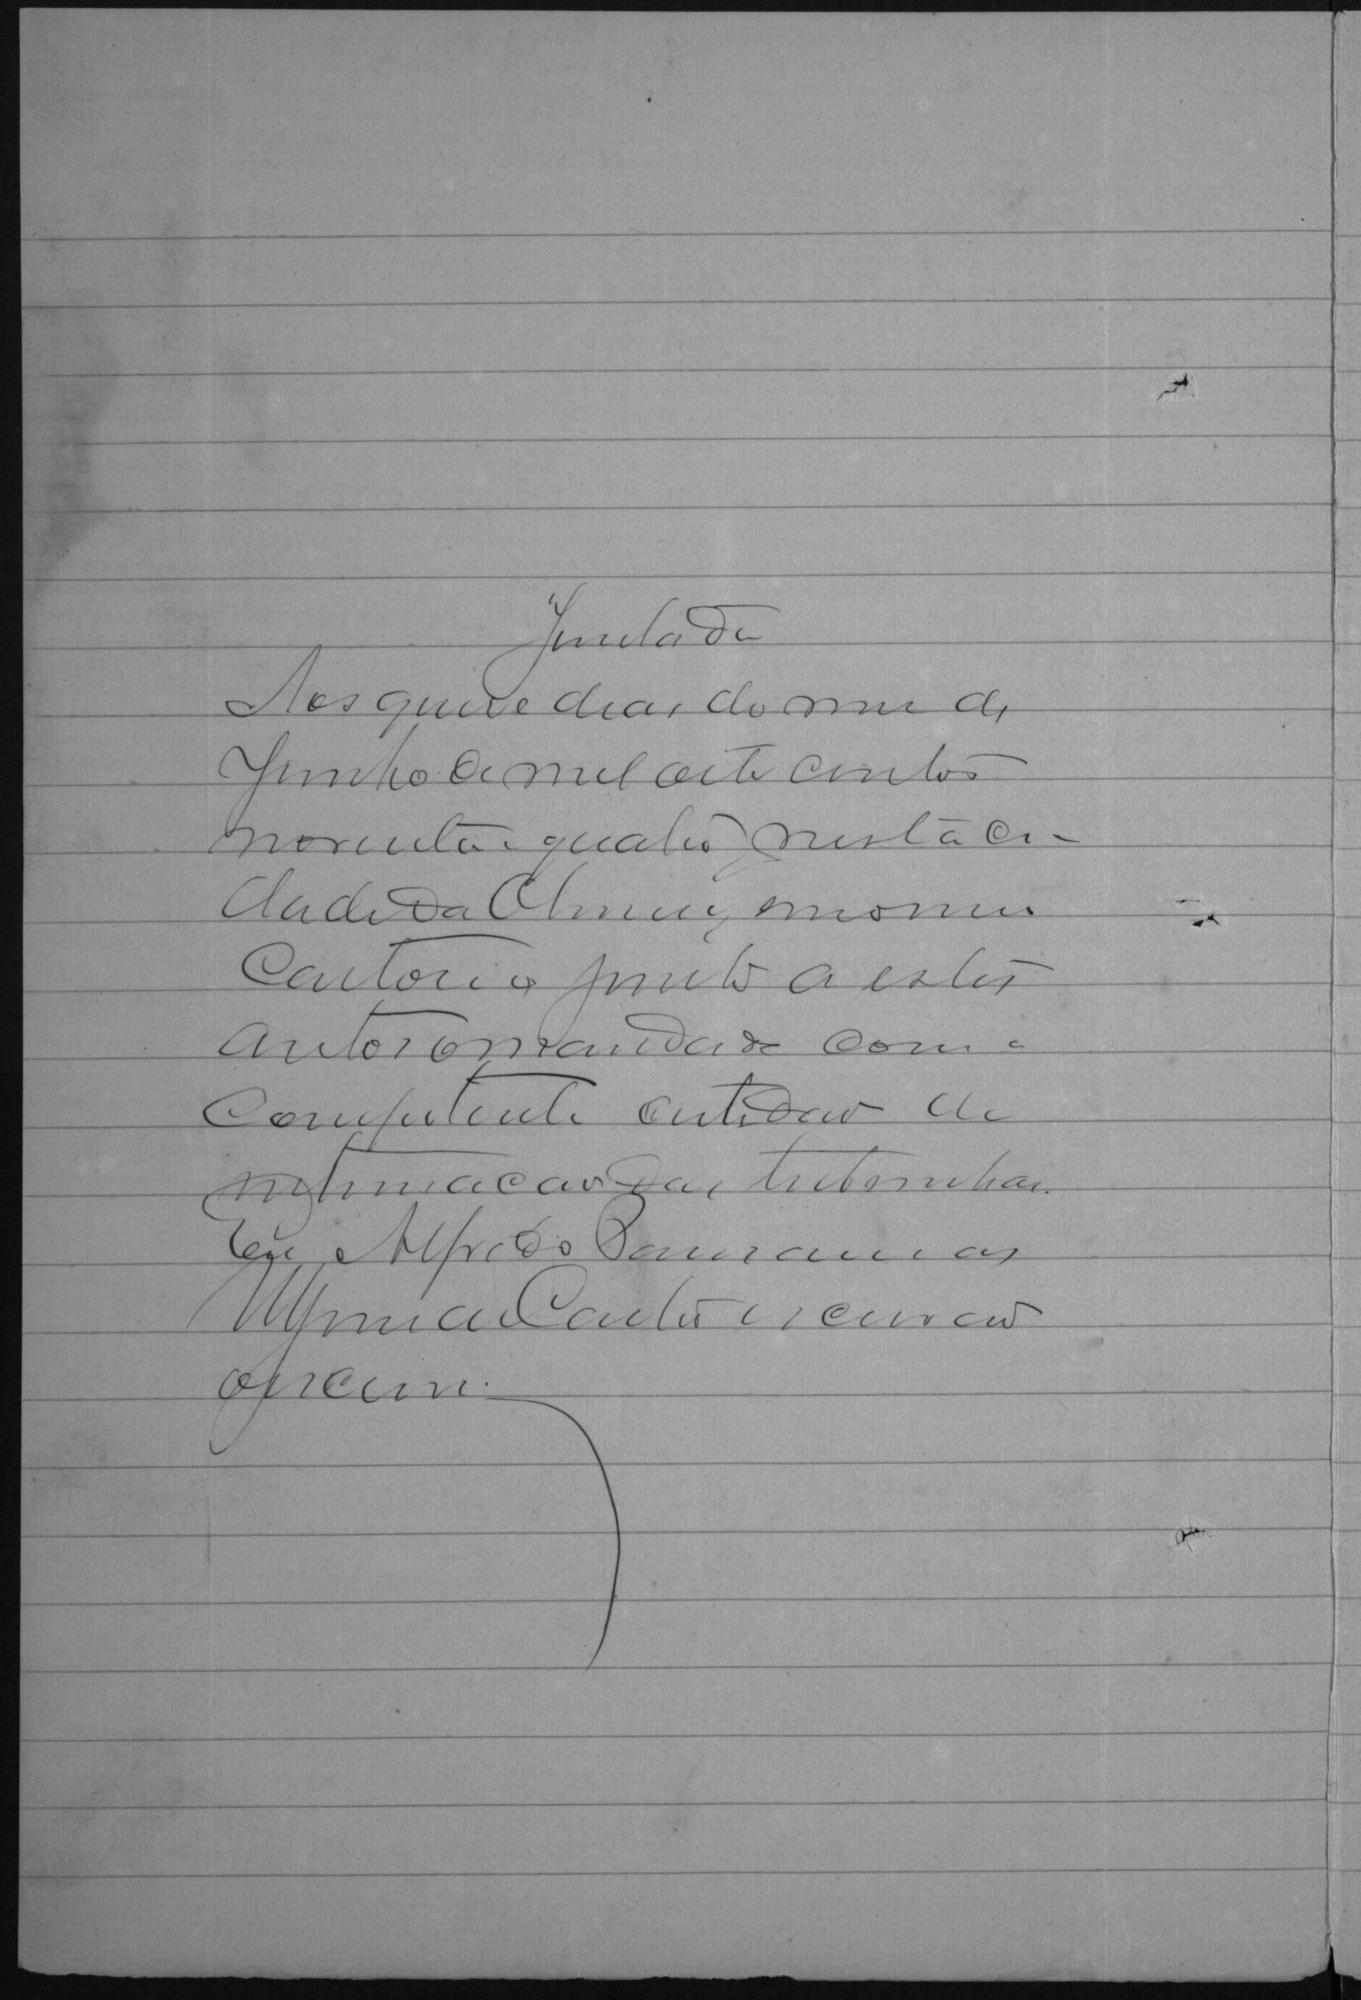 Juntada
Aos quinse dias do mez de
Junho de mil oito centos
noventa e quatro, nesta ci-
dade da em o meu
Cartorio junto a estes
autos o mandado com a
competente certidão de
intimação das testemunhas.
Eu, Alfredo
de Castro escrivão
o escrevi.